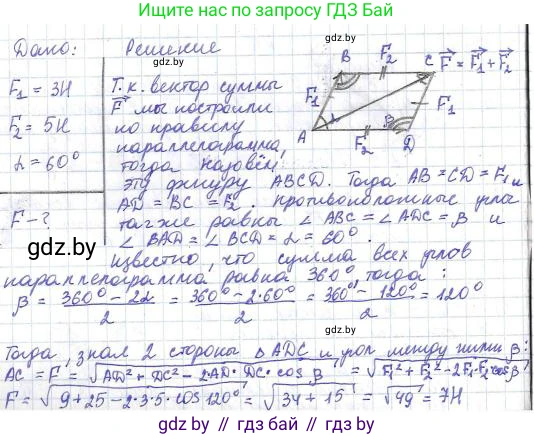 Ищите нас по запросу ГДЗ Бай
Дано:
F₁ = 3Н
F₂ = 5Н
α = 60°
F - ?
gdz.by
Решение
Т.к. вектор суммы
F⃗ мы построили
по правилу
параллелограмма,
тогда назовём
эту фигуру ABCD. Тогда AB = CD = F₁ и
AD = BC = F₂. противоположные углы
также равны ∠ABC = ∠ADC = β и
∠BAD = ∠BCD = α = 60°.
известно, что сумма всех углов
параллелограмма равна 360° тогда:
β = (360° - 2α)/2 = (360° - 2·60°)/2 = (360° - 120°)/2 = 120°
B F₂ C F⃗ = F⃗₁ + F⃗₂
F₁ F₁
α β
A F₂ D
gdz.by
Тогда, зная 2 стороны Δ ADC и угол между ними β:
AC = F = √(AD² + DC² - 2·AD·DC·cos β) = √(F₁² + F₂² - 2F₁·F₂·cos β)
F = √(9 + 25 - 2·3·5·cos 120°) = √(34 + 15) = √49 = 7Н
gdz.by // gdz.by // gdz.by